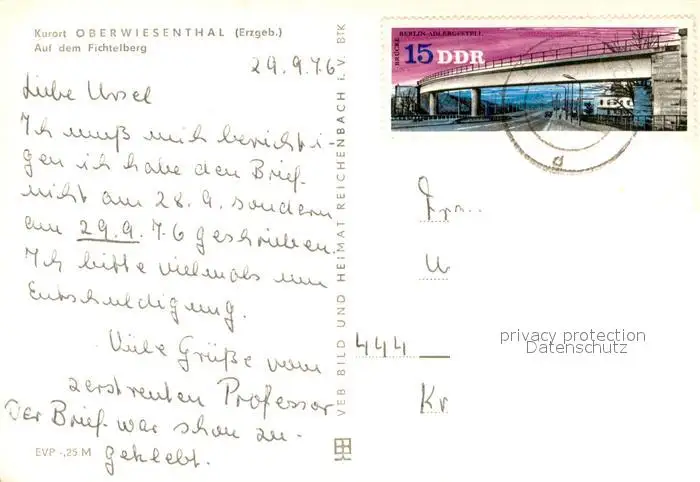 Kurort OBERWIESENTHAL (Erzgeb.)
Auf dem Fichtelberg
29.9.76
Liebe Ursel
Ich muß mich berichti-
gen ich habe den Brief
nicht am 28.9. sondern
am 29.9.76 geschrieben.
Ich bitte vielmals um
Entschuldigung.
Viele Grüße vom
zerstreuten Professor
Der Brief war schon zu-
geklebt.
EVP -,25 M
VEB BILD UND HEIMAT REICHENBACH i. V. BTK
BRÜCKE BERLIN-ADLERGESTELL
15 DDR
Frau
U
444
Kr
privacy protection
Datenschutz